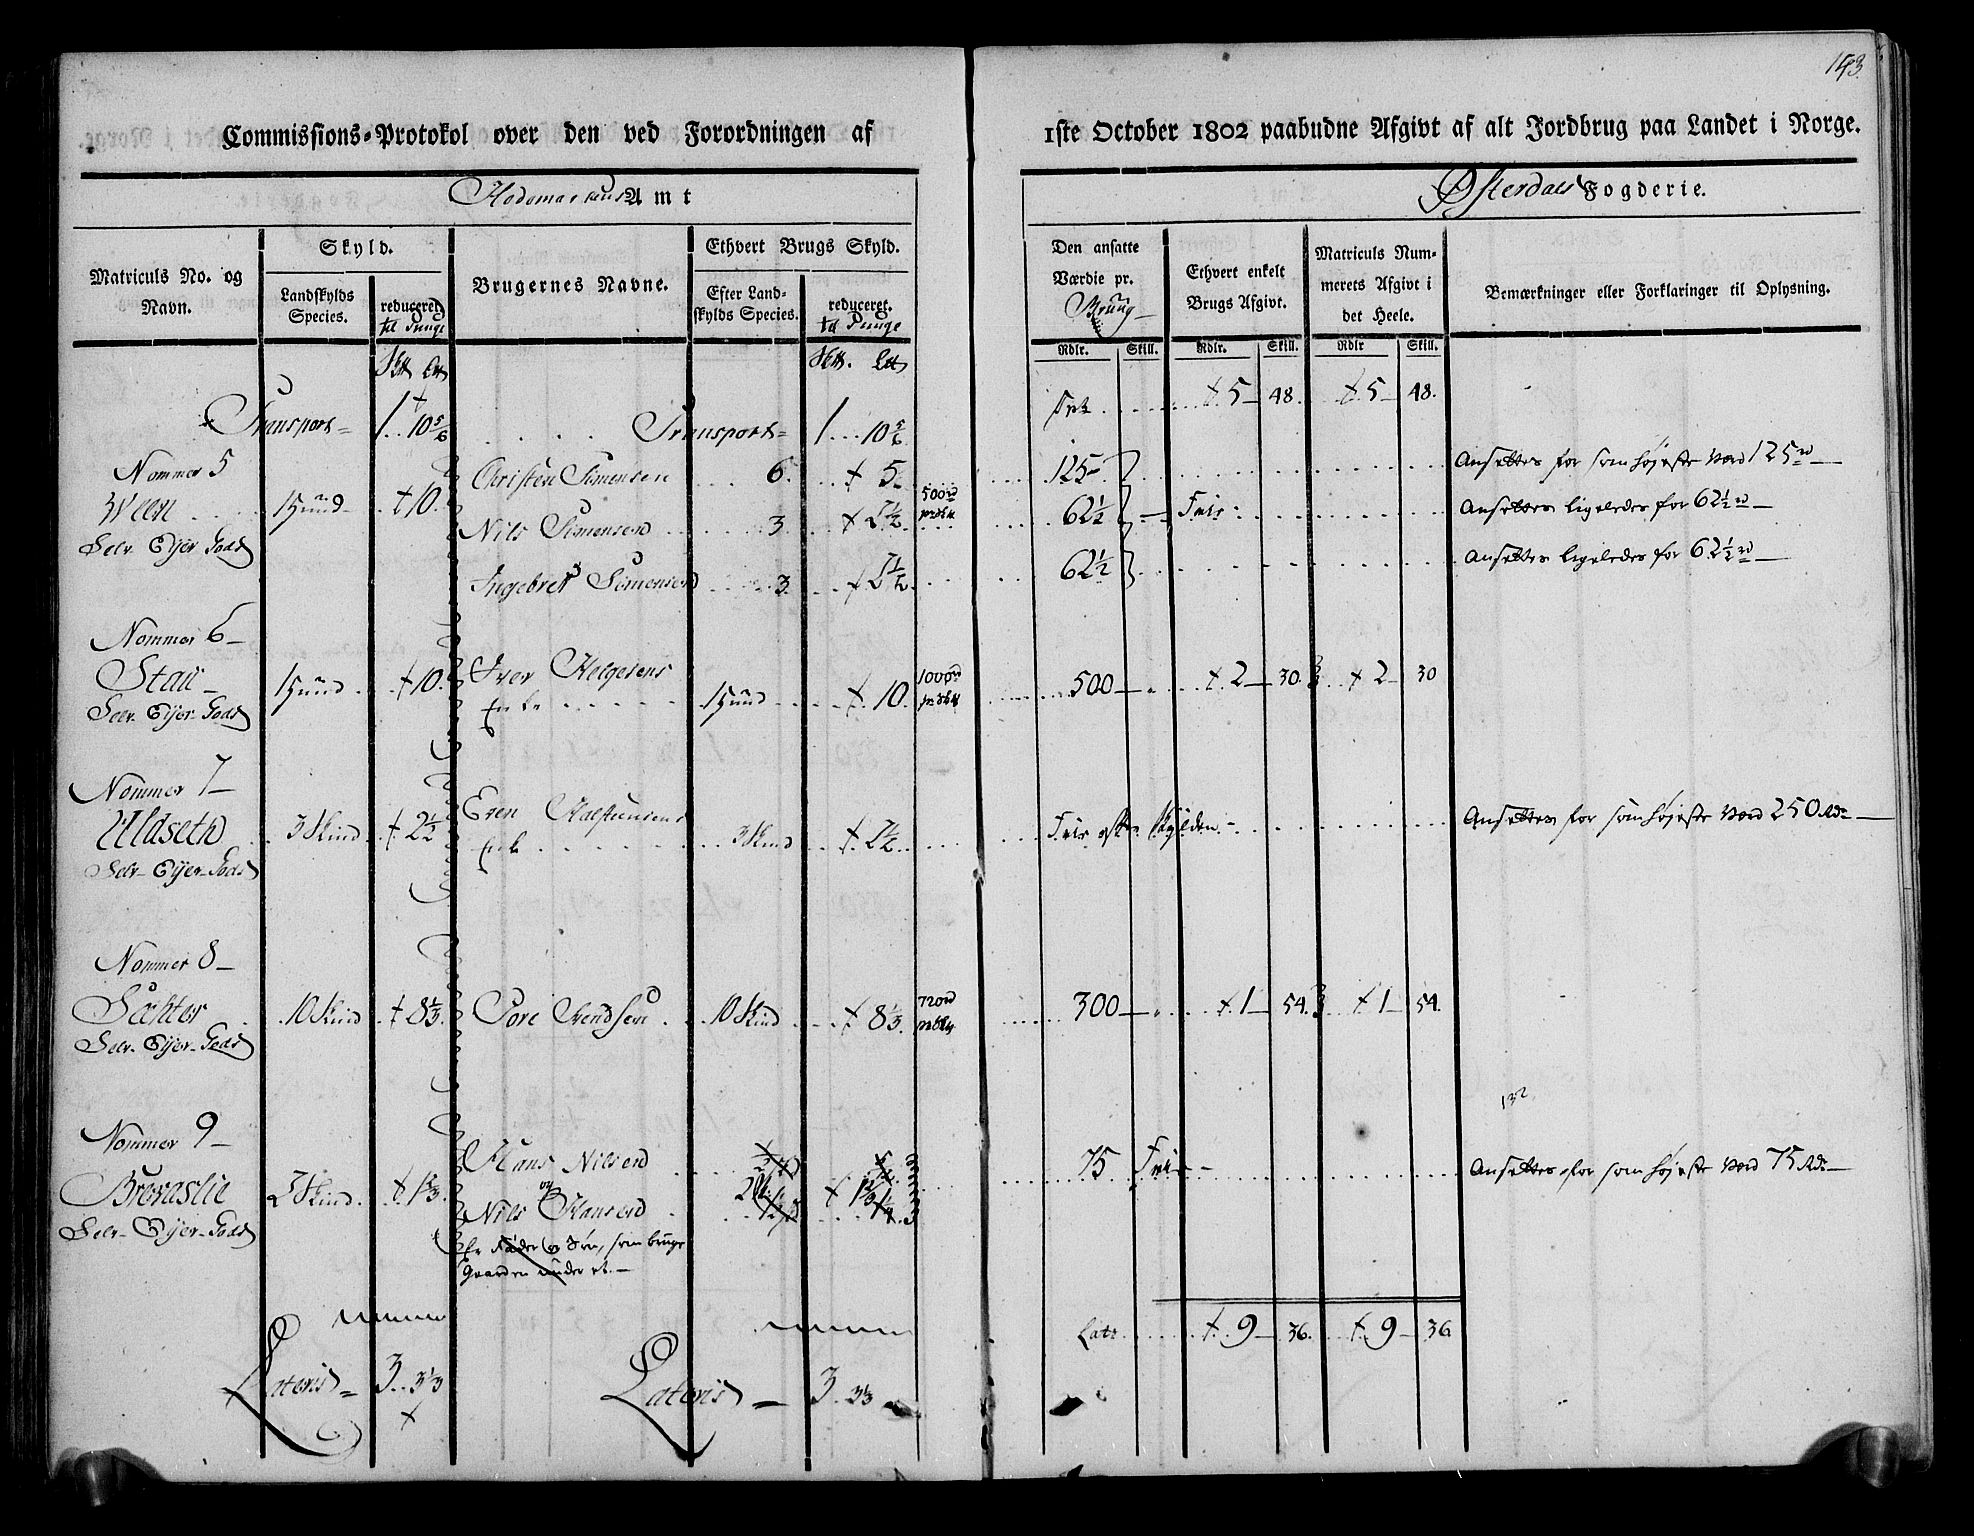 153.
Commissions-Protokol over den ved Forordningen af
1ste October 1802 paabudne Afgivt af alt Jordbrug paa Landet i Norge.
Hedemarkens Amt
Østerdals Fogderie.
Matriculs No. og Navn.
Skyld.
Landskylds Species.
reduceret til Punge
Brugernes Navne.
Ethvert Brugs Skyld.
Efter Landskylds Species.
reduceret. til Punge
Den ansatte Værdie pr. Brüüg
Ethvert enkelt Brugs Afgivt.
Matriculs Nummerets Afgivt i det Heele.
Bemærkninger eller Forklaringer til Oplysning.
Rdlr. Skill. Rdlr. Skill. Rdlr Skill.
Transport= 1..10 5/6 Transport= 1...10 5/6 5 48. 5 48.
Nommer 5
Ween 1 Hund 10.
Selv Eijer Gods
Christen Simensen 6. 5 125 Ansættes for som højeste Værd 125 rd
Nils Simensen 3. 2 1/2 500 rd 62 1/2 Frie Ansættes ligeledes for 62 1/2 rd
Ingebret Simensen 3. 2 1/2 62 1/2 Ansættes ligeledes for 62 1/2 rd
Nommer 6
Staii 1 Hund 10. Iver Helgesens 1 Hund 10. 1000 rd 500 2 30. 2 30
Selv Eijer Gods Enke
Nommer 7
Uldseth 3 Skind 2 1/2 Even Halstensens 3 Skind 2 1/2 Frie efter Skylden Ansættes for som højeste Værd 250 Rdr
Selv Eijer Gods Enke
Nommer 8
Sæhter 10 Skind 8 1/3. Tore Svendsen 10 Skind 8 1/3. 720 rd 300 1 54. 1 54.
Selv Eijer Gods
132
Nommer 9
Brovaslie 2 Skind. 1 2/3. Hans Nilsen 75 Frie Ansættes for som højeste Værd 75 Rdr
Selv Eijer Gods
og
Nils Hansen
Er Fader og Søn, som bruge
Gaarden under et.
Lats 9 36. 9 36
Lateris= 3..3 1/3 Lateris= 3 3 1/3